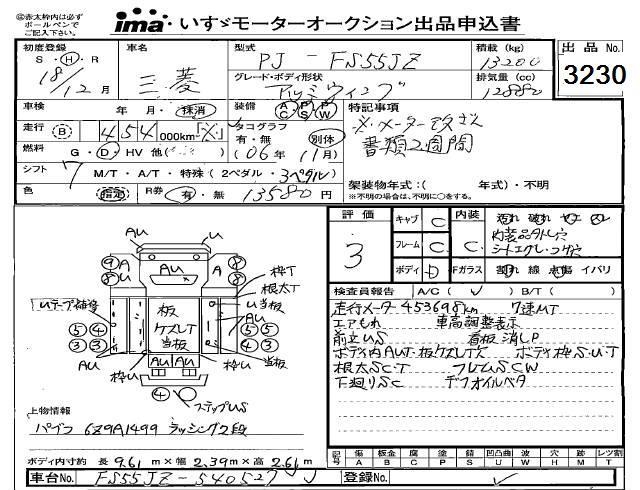 ◎赤太枠内は必ず
ボールペンで
ご記入下さい。
ima・いすゞモーターオークション出品申込書
初度登録
S・H・R
18/12月
車名
三菱
型式
PJ-FS55JZ
積載 (kg)
13200
グレード・ボディ形状
アルミウィング
排気量 (cc)
12880
出品 No.
3230
車検 年・月・抹消
装備 AC PS PW
特記事項
※メーター改ざん
書類2週間
走行 B 454 000km「※」
タコグラフ
有・無 別体
(06年11月)
燃料 G・D・HV 他( )
シフト 7 M/T・A/T・特殊(2ペダル・3ペダル)
架装物年式:( 年式)・不明
※不明の場合は、不明に○をする。
色 指定 R券 有・無 13580円
評価
3
キャブ C
フレーム C
ボディ D
内装 C
汚れ 破れ ヤケ スレ
内装品外し穴
シートエグレ・コゲ穴
Fガラス 割れ 線 点傷 イバリ
検査員報告 A/C( レ ) B/T( )
走行メーター453698km 7速MT
エアもれ 車高調整表示
前立US 看板消しP
ボディ内AUT・板ケズレT欠 ボディ枠S・U・T
根太SC・T フレムSCW
下廻りSC デフオイルベタ
AU
U
A 8
U 8
AU
枠T
根太T
Uテープ補修
U当板
板
ケズレT
当板
AU
5 4
3 3
5 4
3 3
AU
枠U
AU AU
枠U
当板
4
ステップUS
上物情報
パブコ 689A1499 ラッシング2段
ボディ内寸約 長 9.61m×幅 2.39m×高 2.61m
記号 傷 A 板金 B 腐 C 塗 P 錆 S 凹凸曲 U 波 W 穴 H 跡 M レツ割 T
車台No. FS55JZ-540527
登録No.